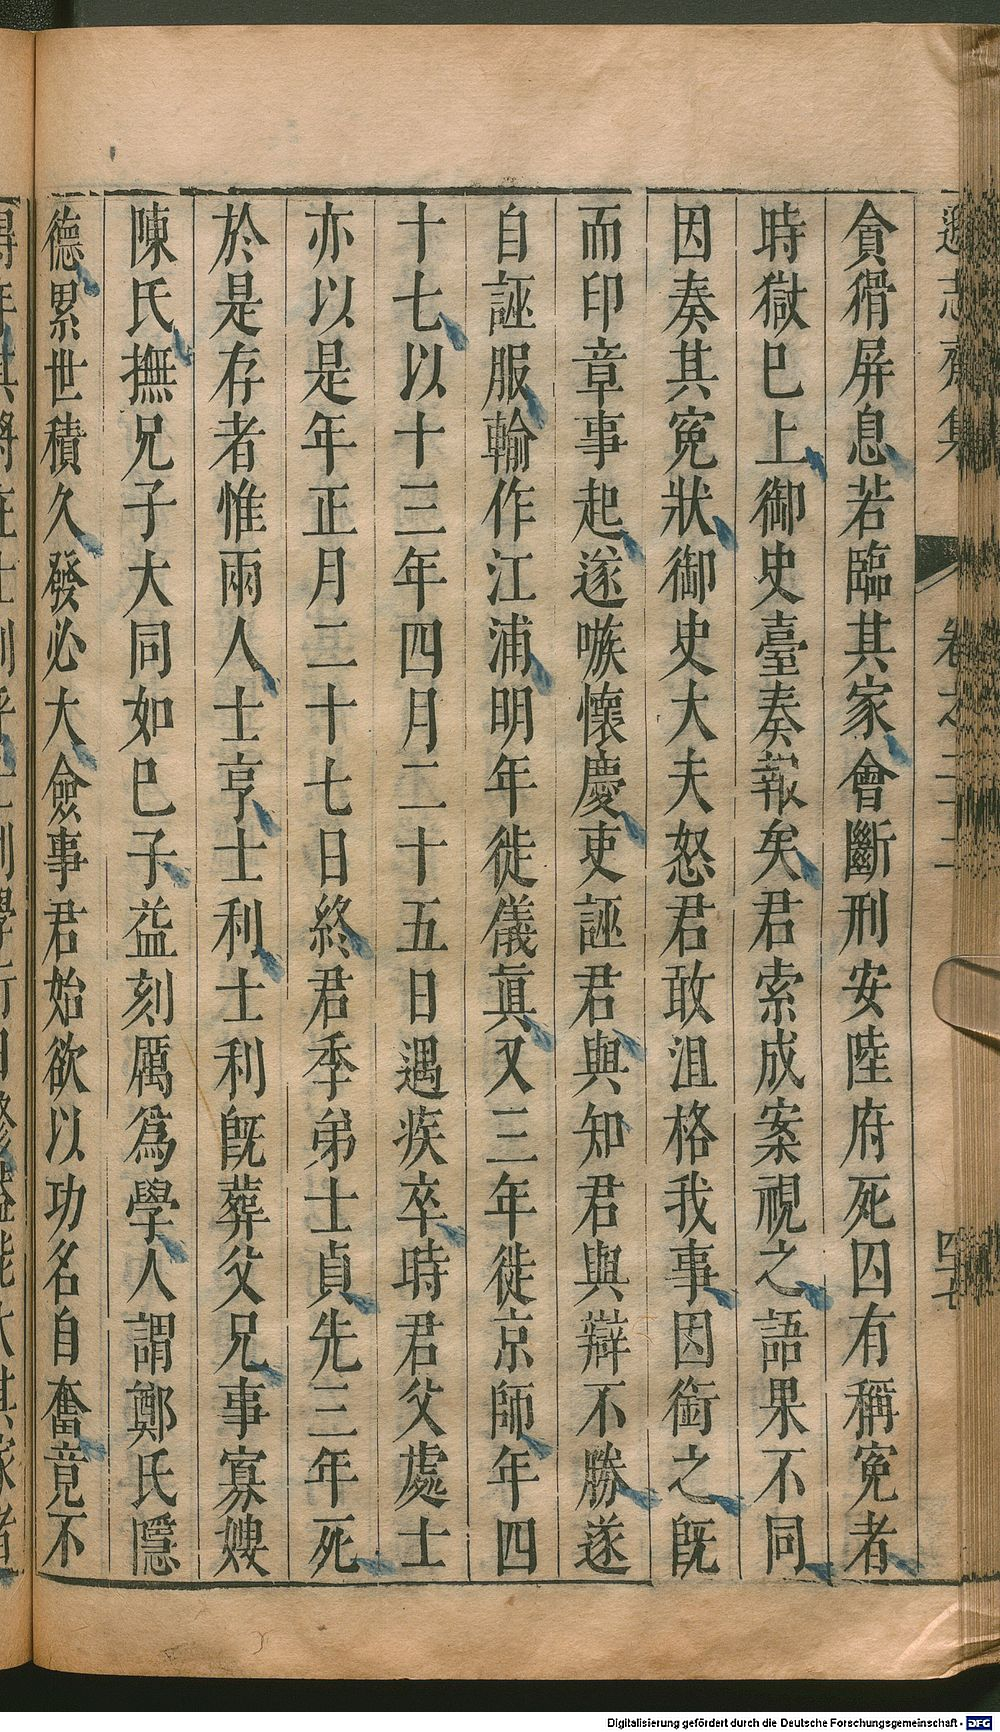 遜志齋集 卷之二十二 四七
貪猾屏息若臨其家會斷刑安陸府死囚有稱寃者
時獄巳上御史臺奏報矣君索成案視之語果不同
因奏其寃狀御史大夫怒君敢沮格我事因銜之旣
而印章事起遂嗾懷慶吏誣君與知君與辯不勝遂
自誣服輸作江浦明年徙儀眞又三年徙京師年四
十七以十三年四月二十五日遇疾卒時君父處士
亦以是年正月二十七日終君季弟士貞先三年死
於是存者惟兩人士亨士利士利旣葬父兄事寡嫂
陳氏撫兄子大同如巳子益刻厲爲學人謂鄭氏隱
德累世積久發必大僉事君始欲以功名自奮竟不
Digitalisierung gefördert durch die Deutsche Forschungsgemeinschaft - DFG